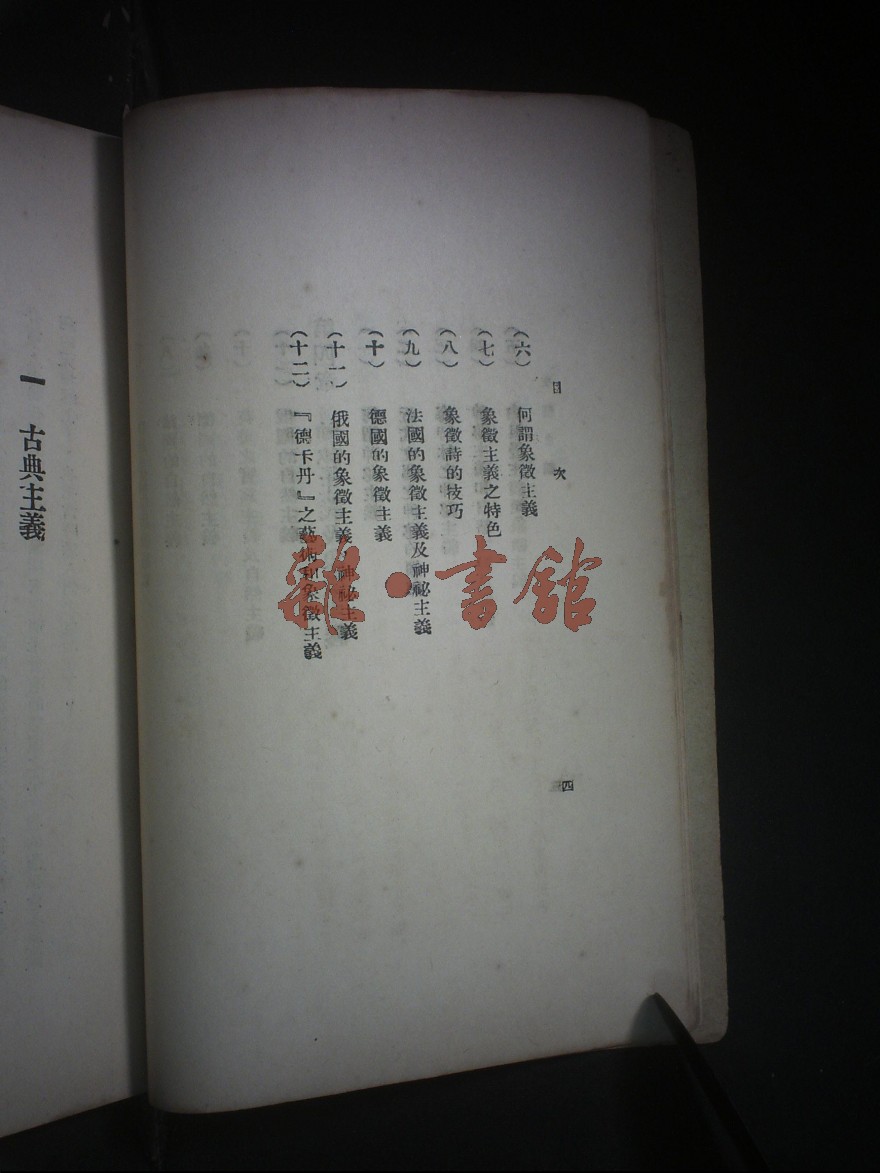 目 次
(六) 何謂象徵主義
(七) 象徵主義之特色
(八) 象徵詩的技巧
(九) 法國的象徵主義及神祕主義
(十) 德國的象徵主義
(十一) 俄國的象徵主義、神祕主義
(十二) 『德卡丹』之藝術和象徵主義
四
一 古典主義
雜·書館